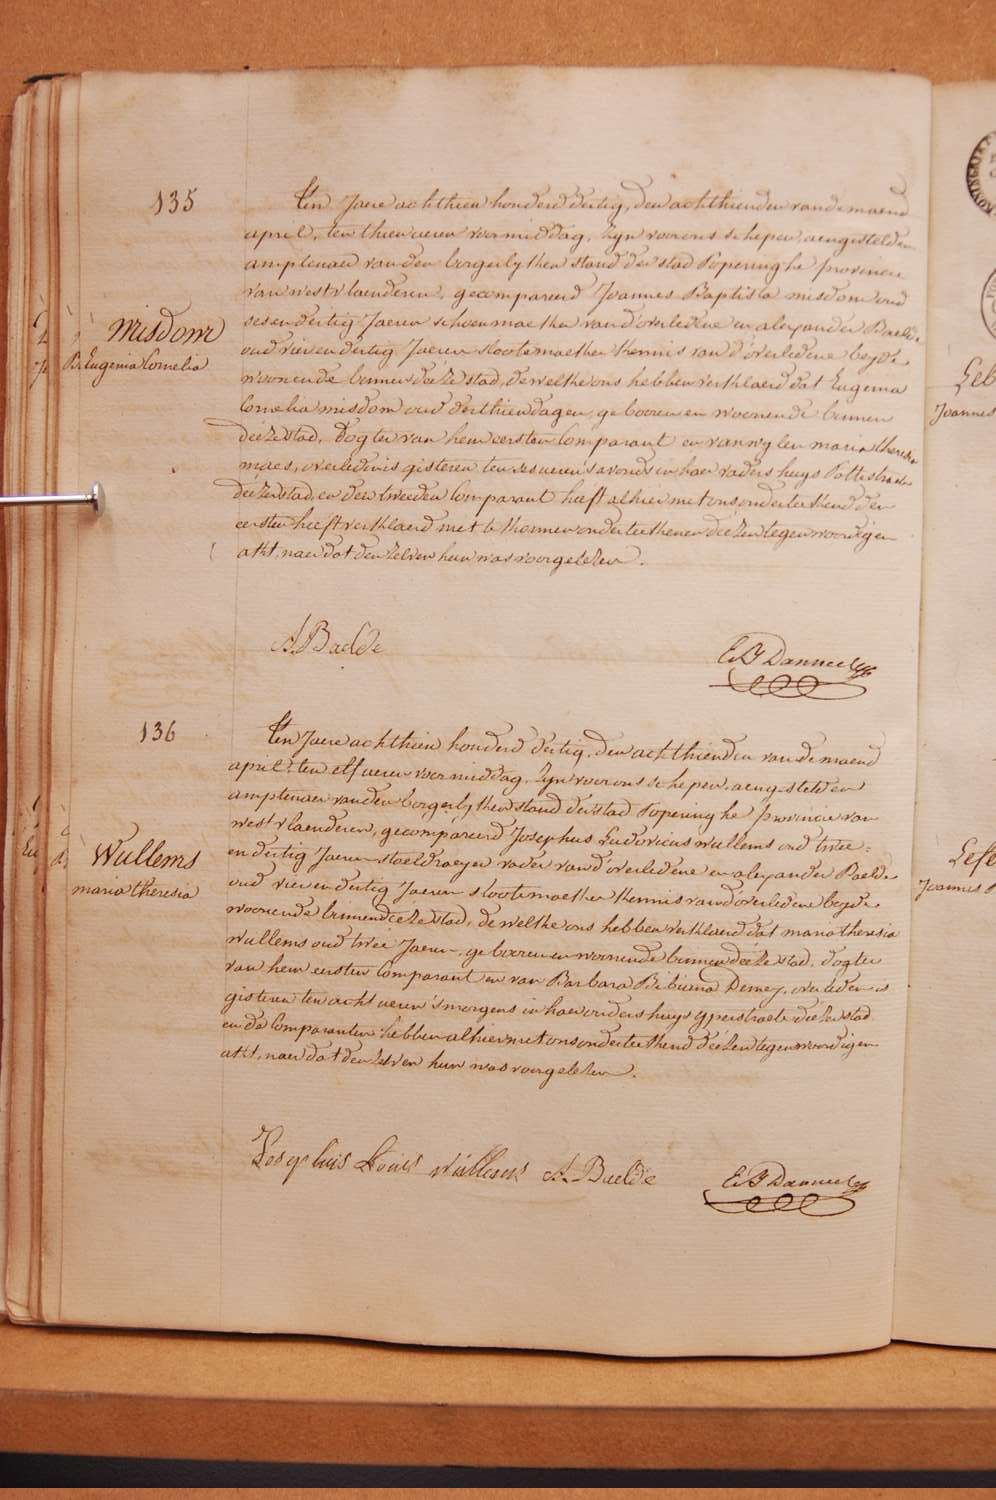 135
Ten Jaere achthien honderd dertig, den achthienden van de maend
april, ten thien ueren voormiddag, Zyn voor ons schepen, aengestelden
amptenaer van den borgerlyken stand der stad Poperinghe provincie
van westvlaenderen, gecompareerd Joannes Baptista misdom oud
ses en dertig Jaeren schoenmaeker vand'overledene en alexander Baelde
oud vier en dertig Jaeren slootemaeker kennis vand'overledene beyde
woonende binnen deéze stad, dewelke ons hebben verklaerd dat Eugenia
Cornelia misdom oud derthien dagen, gebooren en woonende binnen
deéze stad, dogter van hem eersten Comparant en van wylen maria theresia
maes, overleden is gisteren ten ses ueren s'avonds in haer vaders huys Pottestraete
deéze stad, en den tweeden Comparant heeft alhier met ons onderteekend den
eersten heeft verklaerd niet te konnen onderteekenen deézen tegenwoordigen
akt, naer dat den zelven hun was voorgelezen.
Misdom
Eugenia Cornelia
A. Baelde
E B Danneel
136
Ten Jaere achthien honderd dertig, den achthienden van de maend
april, ten elf ueren voormiddag, Zyn voor ons schepen, aengestelden
amptenaer van den borgerlyken stand der stad Poperinghe provincie van
westvlaenderen, gecompareerd Josephus Ludovicus wullems oud twee-
en dertig Jaeren stoeldraeyer vader vand'overledene en alexander Baelde
oud vier en dertig Jaeren slootemaeker kennis vand'overledene beyde
woonende binnen deéze stad, dewelke ons hebben verklaerd dat maria theresia
wullems oud twee Jaeren, gebooren en woonende binnen deéze stad, dogter
van hem eersten Comparant en van Barbara Bibiana Demey, overleden is
gisteren ten acht ueren s'morgens in haer ouders huys yperstraete deéze stad
en de Comparanten hebben alhier met ons onderteekend deézen tegenwoordigen
akt, naer dat den zelven hun was voorgelezen.
Wullems
maria theresia
Josephus Louis Wullems A. Baelde
E B Danneel
Joannes
Joannes